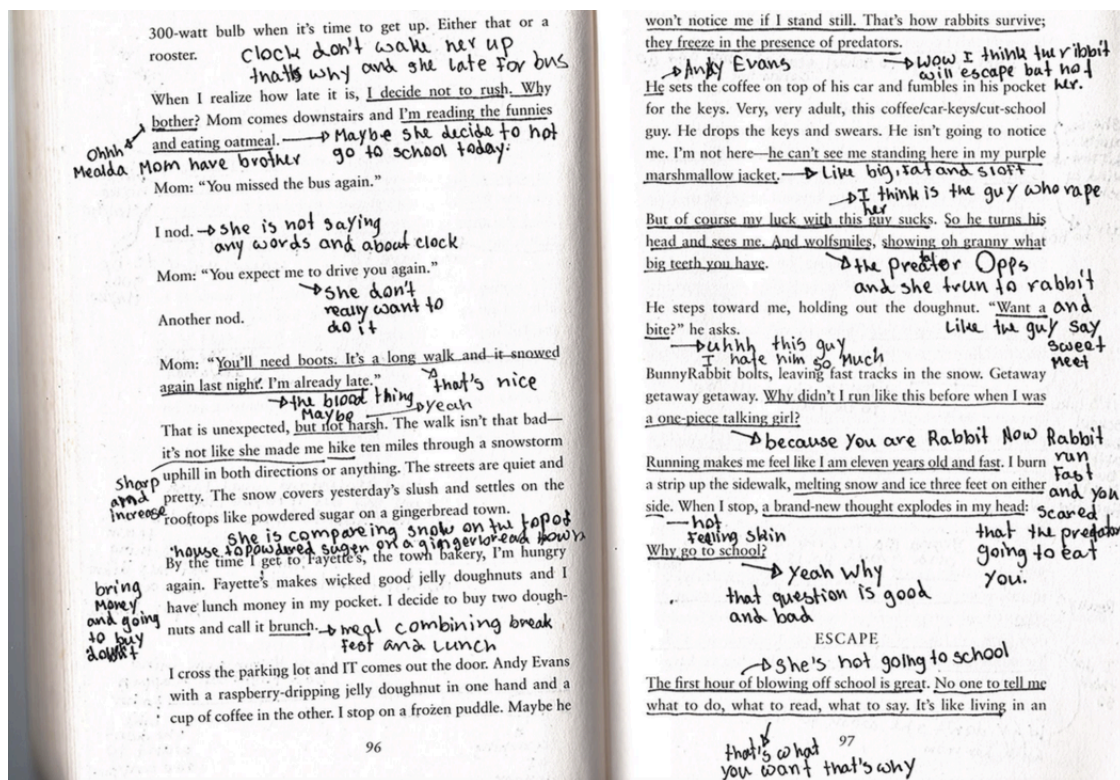 300-watt bulb when it's time to get up. Either that or a
rooster.
Clock don't wake her up
that's why and she late for bus
When I realize how late it is, I decide not to rush. Why
bother? Mom comes downstairs and I'm reading the funnies
and eating oatmeal.
Maybe she decide to not
go to school today.
Ohhh
Mealda Mom have brother
Mom: "You missed the bus again."
I nod.
she is not saying
any words and about clock
Mom: "You expect me to drive you again."
she don't
really want to
do it
Another nod.
Mom: "You'll need boots. It's a long walk and it snowed
again last night. I'm already late."
that's nice
the blood thing
Maybe
yeah
That is unexpected, but not harsh. The walk isn't that bad—
it's not like she made me hike ten miles through a snowstorm
uphill in both directions or anything. The streets are quiet and
pretty. The snow covers yesterday's slush and settles on the
rooftops like powdered sugar on a gingerbread town.
Sharp
and
increase
she is compareing snow on the top of
house to powdered sugar on a gingerbread town
By the time I get to Fayette's, the town bakery, I'm hungry
again. Fayette's makes wicked good jelly doughnuts and I
have lunch money in my pocket. I decide to buy two dough-
nuts and call it brunch.
meal combining break
fest and Lunch
bring
money
and going
to buy
I cross the parking lot and IT comes out the door. Andy Evans
with a raspberry-dripping jelly doughnut in one hand and a
cup of coffee in the other. I stop on a frozen puddle. Maybe he
96
won't notice me if I stand still. That's how rabbits survive;
they freeze in the presence of predators.
Andy Evans
wow I think the ribbit
will escape but not
her.
He sets the coffee on top of his car and fumbles in his pocket
for the keys. Very, very adult, this coffee/car-keys/cut-school
guy. He drops the keys and swears. He isn't going to notice
me. I'm not here—he can't see me standing here in my purple
marshmallow jacket.
Like big, fat and sloft
I think is the guy who rape
her
But of course my luck with this guy sucks. So he turns his
head and sees me. And wolfsmiles, showing oh granny what
big teeth you have.
the predator Opps
and she trun to rabbit
He steps toward me, holding out the doughnut. "Want a
bite?" he asks.
and
Like the guy say
sweet
meet
uhhh this guy
I hate him so much
BunnyRabbit bolts, leaving fast tracks in the snow. Getaway
getaway getaway. Why didn't I run like this before when I was
a one-piece talking girl?
because you are Rabbit Now Rabbit
run
fast
and you
scared
that the predator
going to eat
you.
Running makes me feel like I am eleven years old and fast. I burn
a strip up the sidewalk, melting snow and ice three feet on either
side. When I stop, a brand-new thought explodes in my head:
hot
feeling skin
Why go to school?
yeah why
that question is good
and bad
ESCAPE
She's not going to school
The first hour of blowing off school is great. No one to tell me
what to do, what to read, what to say. It's like living in an
97
that's what
you want that's why